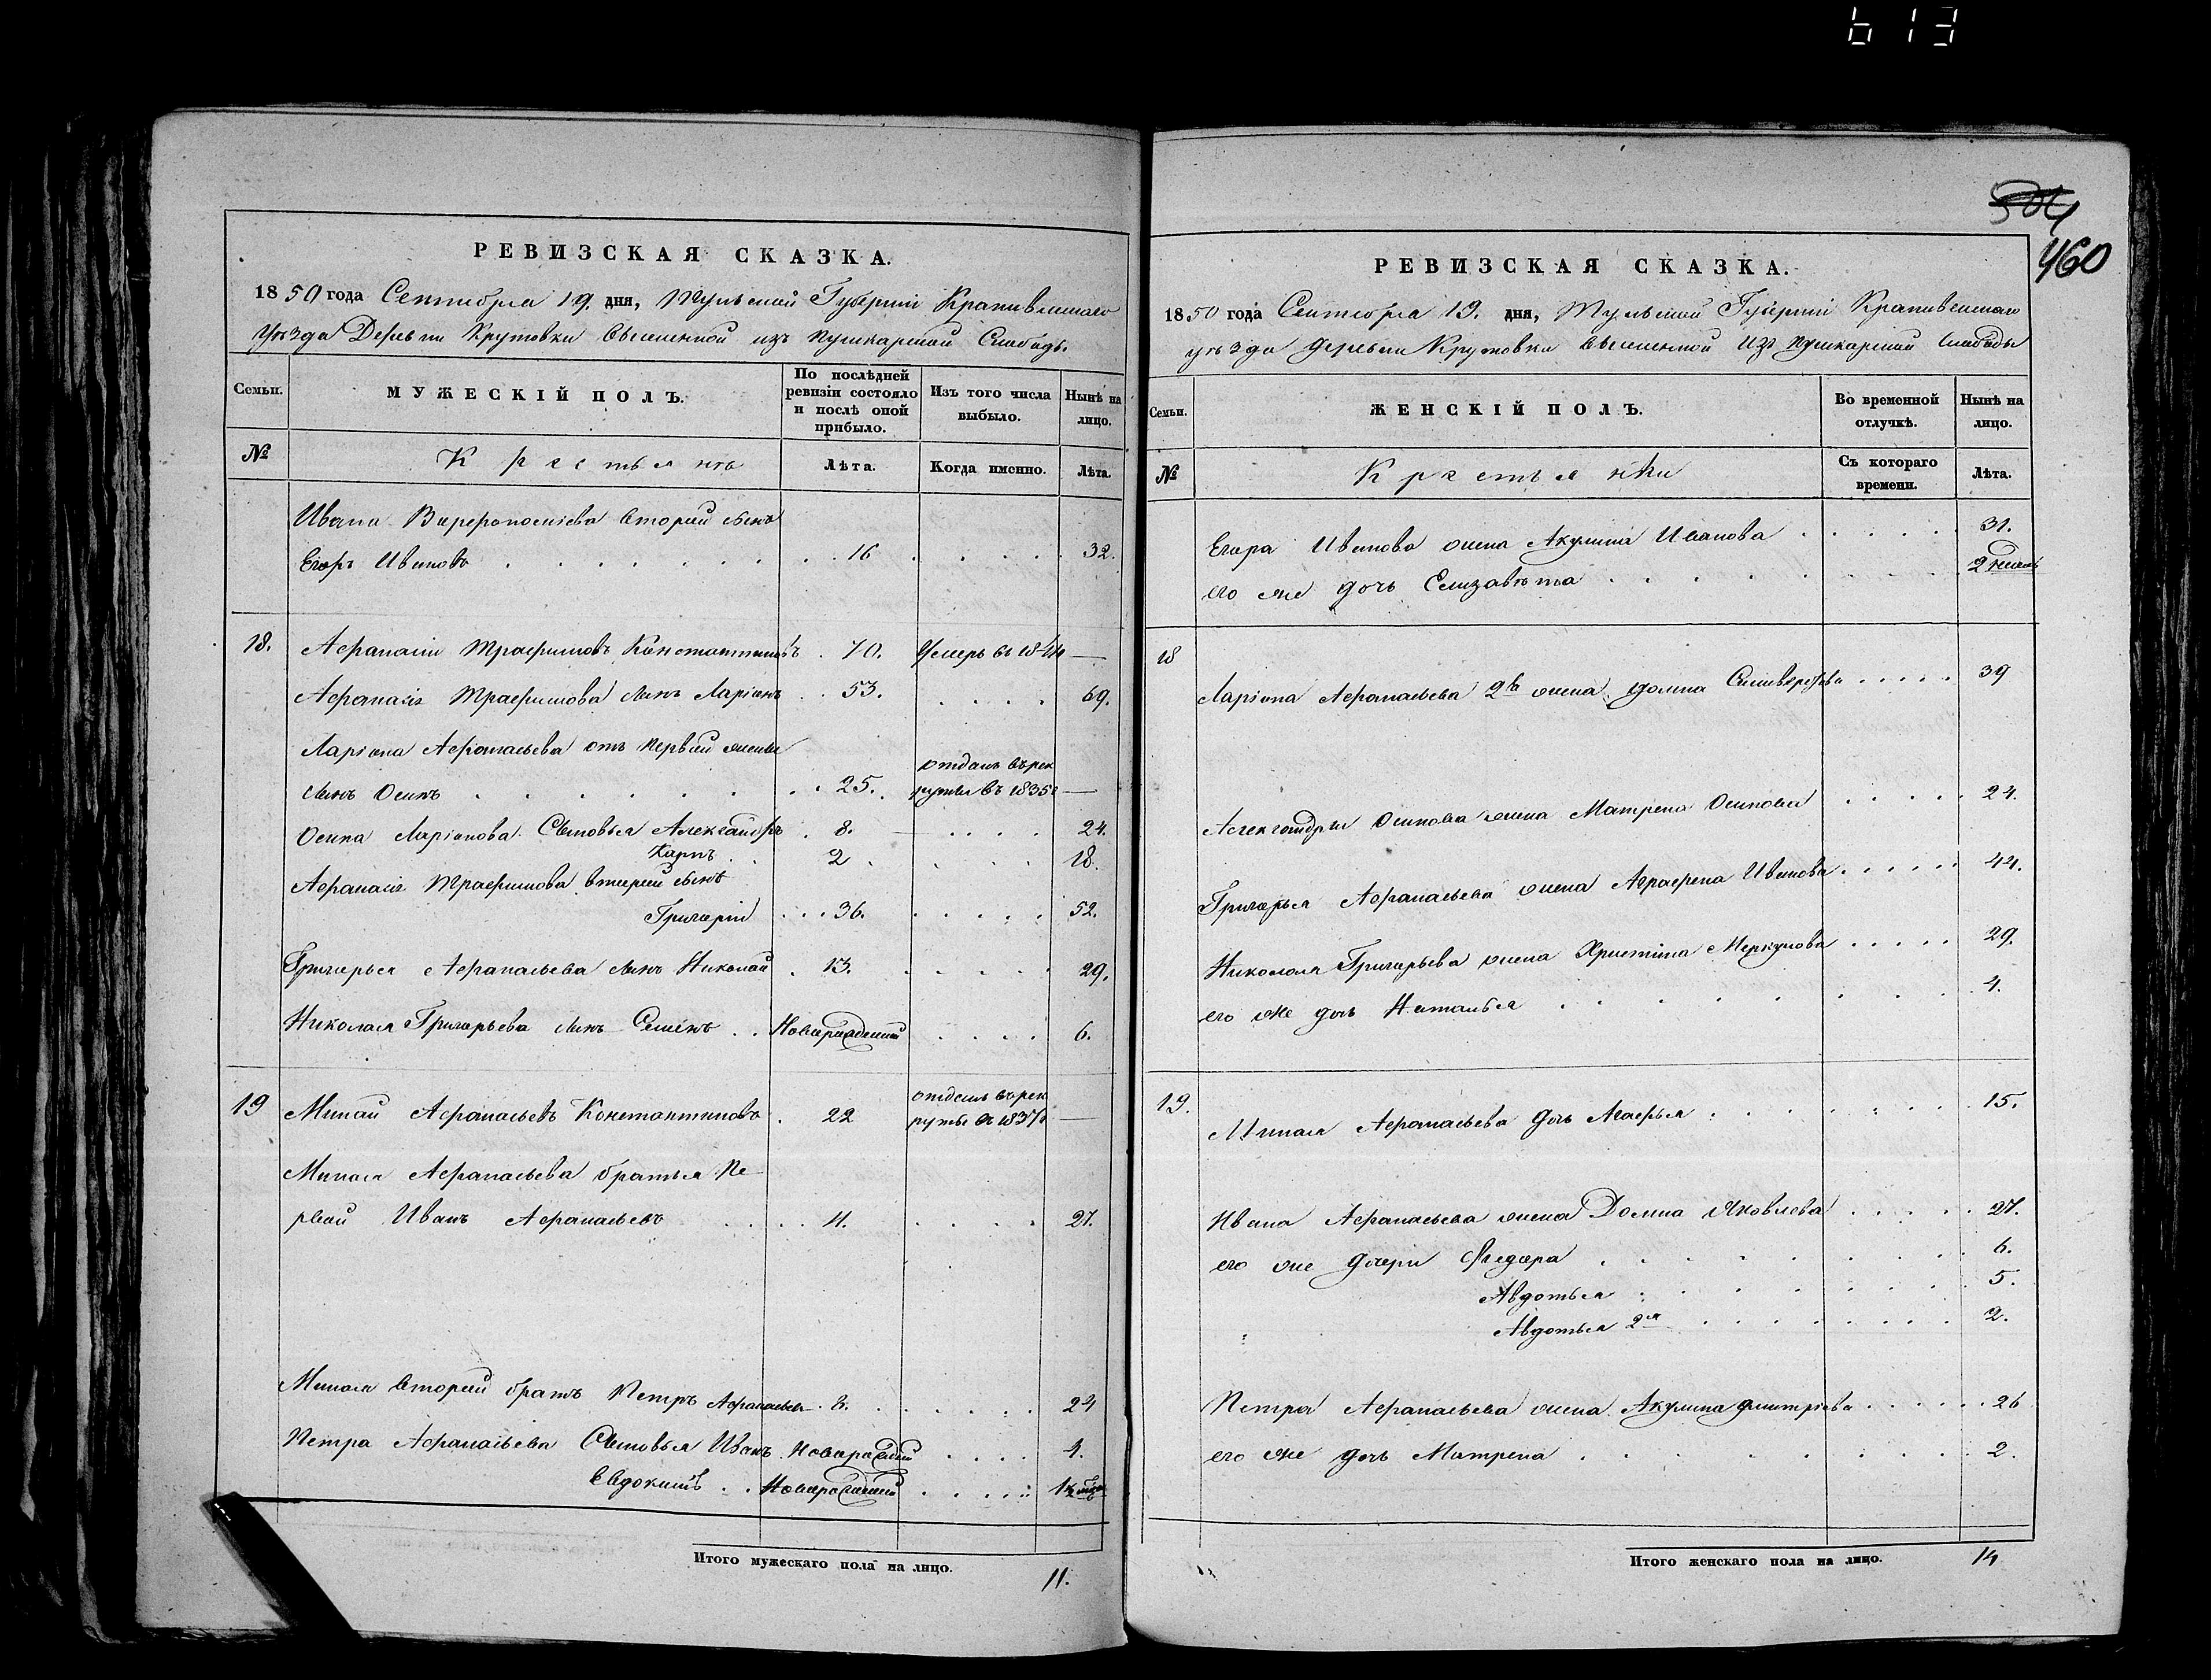 613
504
460
РЕВИЗСКАЯ СКАЗКА.
1850 года Сентября 19. дня, Тульской Губерніи Крапивенскаго
уѣзда Деревни Крутовки выселенной изъ Пушкарской Слободы
Семьи.
МУЖЕСКІЙ ПОЛЪ.
По послѣдней ревизіи состояло и послѣ оной прибыло.
Изъ того числа выбыло.
Нынѣ на лицо.
№
Крестьянъ
Лѣта.
Когда именно.
Лѣта.
Ивана второй сынъ
Егоръ Ивановъ 16 32.
18. Афанасій Трафимовъ Константиновъ 70. Умеръ въ 1844 —
Афанасія Трафимова сынъ Ларіонъ 53. 69.
Ларіона Афанасьева отъ первой жены
сынъ Осипъ 25. отданъ въ рек
руты въ 1835г —
Осипа Ларіонова Сыновья Александръ 8. 24.
Карпъ 2 18.
Афанасія Трафимова второй сынъ
Григорій 36. 52.
Григорья Афанасьева сынъ Николай 13. 29.
Николая Григорьева сынъ Семенъ Новорожденный 6.
19 Минай Афанасьевъ Константиновъ 22 отданъ въ рек
руты въ 1837г —
Миная Афанасьева братья пе-
рвой Иванъ Афанасьевъ 11. 27.
Миная второй братъ Петръ Афанасьевъ 8. 24
Петра Афанасьева Сыновья Иванъ Новорожденный 4.
Евдокимъ Новорожденный
Итого мужескаго пола на лицо. 11.
РЕВИЗСКАЯ СКАЗКА.
1850 года Сентября 19. дня, Тульской Губерніи Крапивенскаго
уѣзда деревни Крутовки выселенной изъ Пушкарской Слободы
Семьи.
ЖЕНСКІЙ ПОЛЪ.
Во временной отлучкѣ.
Нынѣ на лицо.
№
Крестьянки
Съ котораго времени.
Лѣта.
Егора Иванова жена Акулина Иванова 31.
его же дочь Елизавѣта 2 недѣль
18
Ларіона Афанасьева 2я жена Домна Силиверстова 39
Александры Осипова жена Матрена Осипова 24.
Григорья Афанасьева жена Аграфена Иванова 44.
Николая Григорьева жена Христина Меркулова 29.
его же дочь Наталья 4.
19.
Миная Афанасьева дочь Агафья 15.
Ивана Афанасьева жена Домна Яковлева 27.
его же дочери Федора 6.
Авдотья 5.
Авдотья 2я 2.
Петра Афанасьева жена Акулина Дмитріева 26
его же дочь Матрена 2.
Итого женскаго пола на лицо. 14